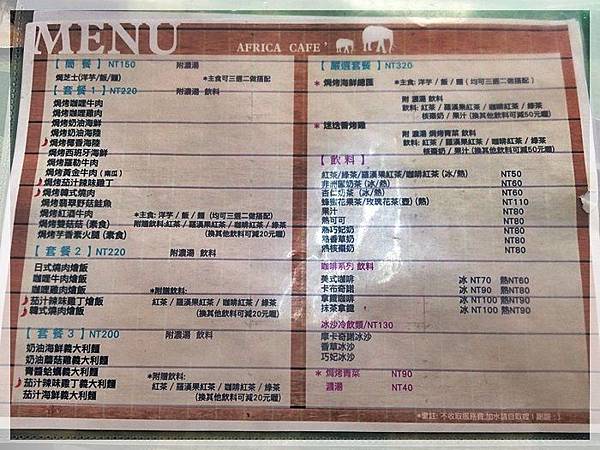 MENU
AFRICA CAFE'
【 簡 餐 】 NT150 附濃湯
焗芝士(洋芋/飯/麵) *主食可三選二做搭配
【 套 餐 1 】 NT220 附濃湯 飲料
焗烤咖哩牛肉
焗烤咖哩雞肉
焗烤奶油海鮮
焗烤奶油海陸
焗烤椰香海陸
焗烤西班牙海鮮
焗烤羅勒牛肉
焗烤黃金牛肉(南瓜)
焗烤茄汁辣味雞丁
焗烤韓式燒肉
焗烤翡翠野菇鮭魚
焗烤紅酒牛肉 *主食: 洋芋 / 飯 / 麵 (均可三選二做搭配)
焗烤雙菇菇 (素食) 附贈飲料:紅茶 / 羅漢果紅茶 / 咖啡紅茶 / 綠茶
焗烤芋香素火腿 (素食) (換其他飲料可減20元喔)
【 套餐 2 】 NT220 附濃湯 飲料
日式燒肉燴飯
咖哩牛肉燴飯
咖哩雞肉燴飯 *附贈飲料:
茄汁辣味雞丁燴飯 紅茶 / 羅漢果紅茶 / 咖啡紅茶 / 綠茶
韓式燒肉燴飯 (換其他飲料可減20元喔)
【 套餐 3 】 NT200 附濃湯 飲料
奶油海鮮義大利麵
奶油蘑菇雞義大利麵
青醬蛤蠣義大利麵 *附贈飲料:
茄汁辣味雞丁義大利麵 紅茶 / 羅漢果紅茶 / 咖啡紅茶 / 綠茶
茄汁海鮮義大利麵 (換其他飲料可減20元喔)
【 嚴選套餐 】 NT320
* 焗烤海鮮總匯 *主食: 洋芋 / 飯 / 麵 ( 均可三選二做搭配)
附 濃湯 飲料
飲料: 紅茶 / 羅漢果紅茶 / 咖啡紅茶 / 綠茶
核棗奶 / 果汁 (換其他飲料可減50元喔)
* 迷迭香烤雞 附 濃湯 焗烤青菜 飲料
飲料: 紅茶 / 羅漢果紅茶 / 咖啡紅茶 / 綠茶
核棗奶 / 果汁 (換其他飲料可減50元喔)
【 飲 料 】
紅茶/綠茶/羅漢果紅茶/咖啡紅茶 (冰/熱) NT50
非洲鴛奶茶 (冰/熱) NT60
杏仁奶茶 (冰/熱) NT60
蜂蜜花果茶/玫瑰花茶(壺) (熱) NT110
果汁 NT80
熱可可 NT80
熱巧妃奶 NT80
熱香草奶 NT80
熱核棗奶 NT80
咖啡系列 飲料
美式咖啡 冰 NT70 熱NT60
卡布奇諾 冰 NT90 熱NT80
拿鐵咖啡 冰 NT100 熱NT90
抹茶拿鐵 冰 NT100 熱NT90
冰沙冷飲類/NT130
摩卡奇諾冰沙
香草冰沙
巧妃冰沙
* 焗烤青菜 NT90
濃湯 NT40
*童註: 不收取服務費,加水請自取喔!謝謝 : )